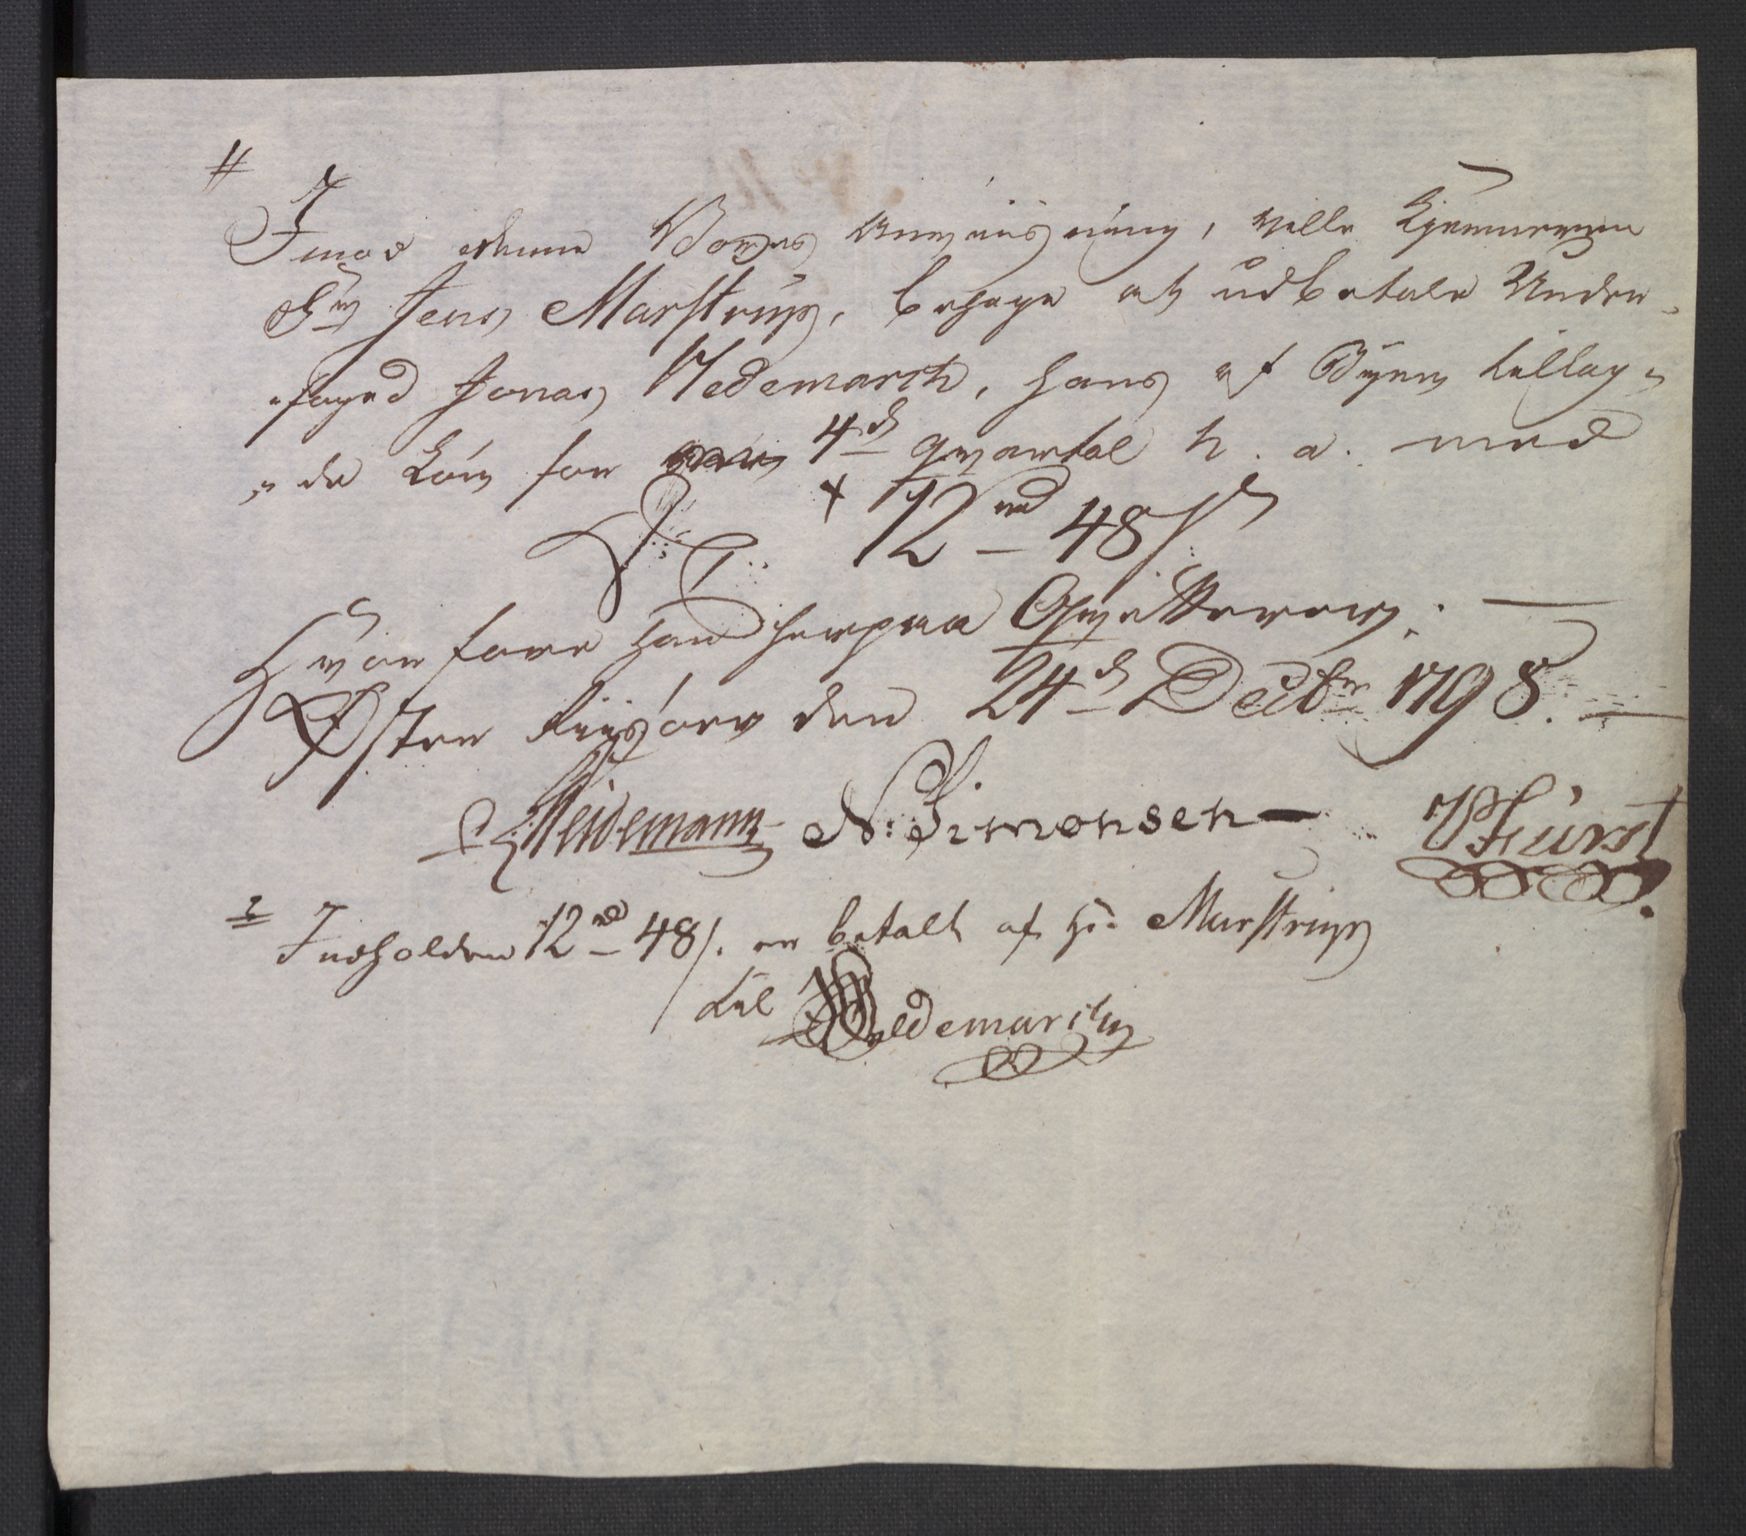 Imod denne Vores Anviisning, ville Kjemneren
Hr Jens Marstrup, behage at udbetale Under-
-foged Jonas Hedemarck, hans af Byen tillag-
-de Løn for 4de qvartal h. a. med
12 rd 48 s
Hvorfore han herpaa Qvitterer.
Øster Riisøer den 24de Decbr 1798.
Heidemann N: Simonsen Fürst
Indholden 12 rd 48 s. er betalt af Hr. Marstrup
til Hedemarck